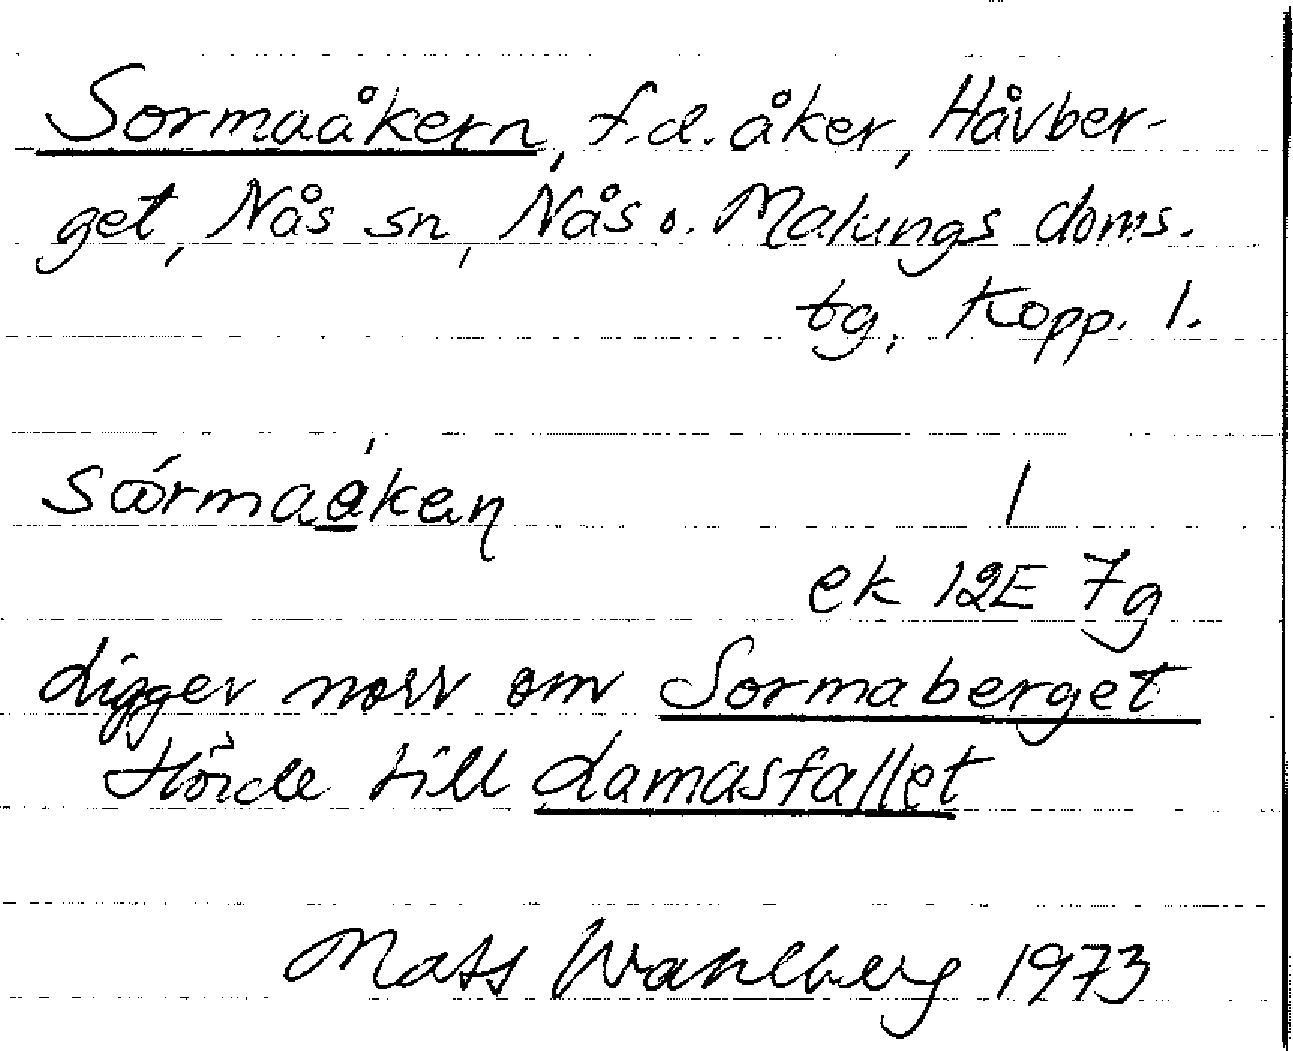 Sormaåkern, f.d. åker, Håvber-
get, Nås sn, Nås o. Malungs doms.
tg, Kopp. l.
sørmaåkeɳ 1
ek 12E 7g
Ligger norr om Sormaberget
Hörde till Lamasfallet
Mats Wahlberg 1973